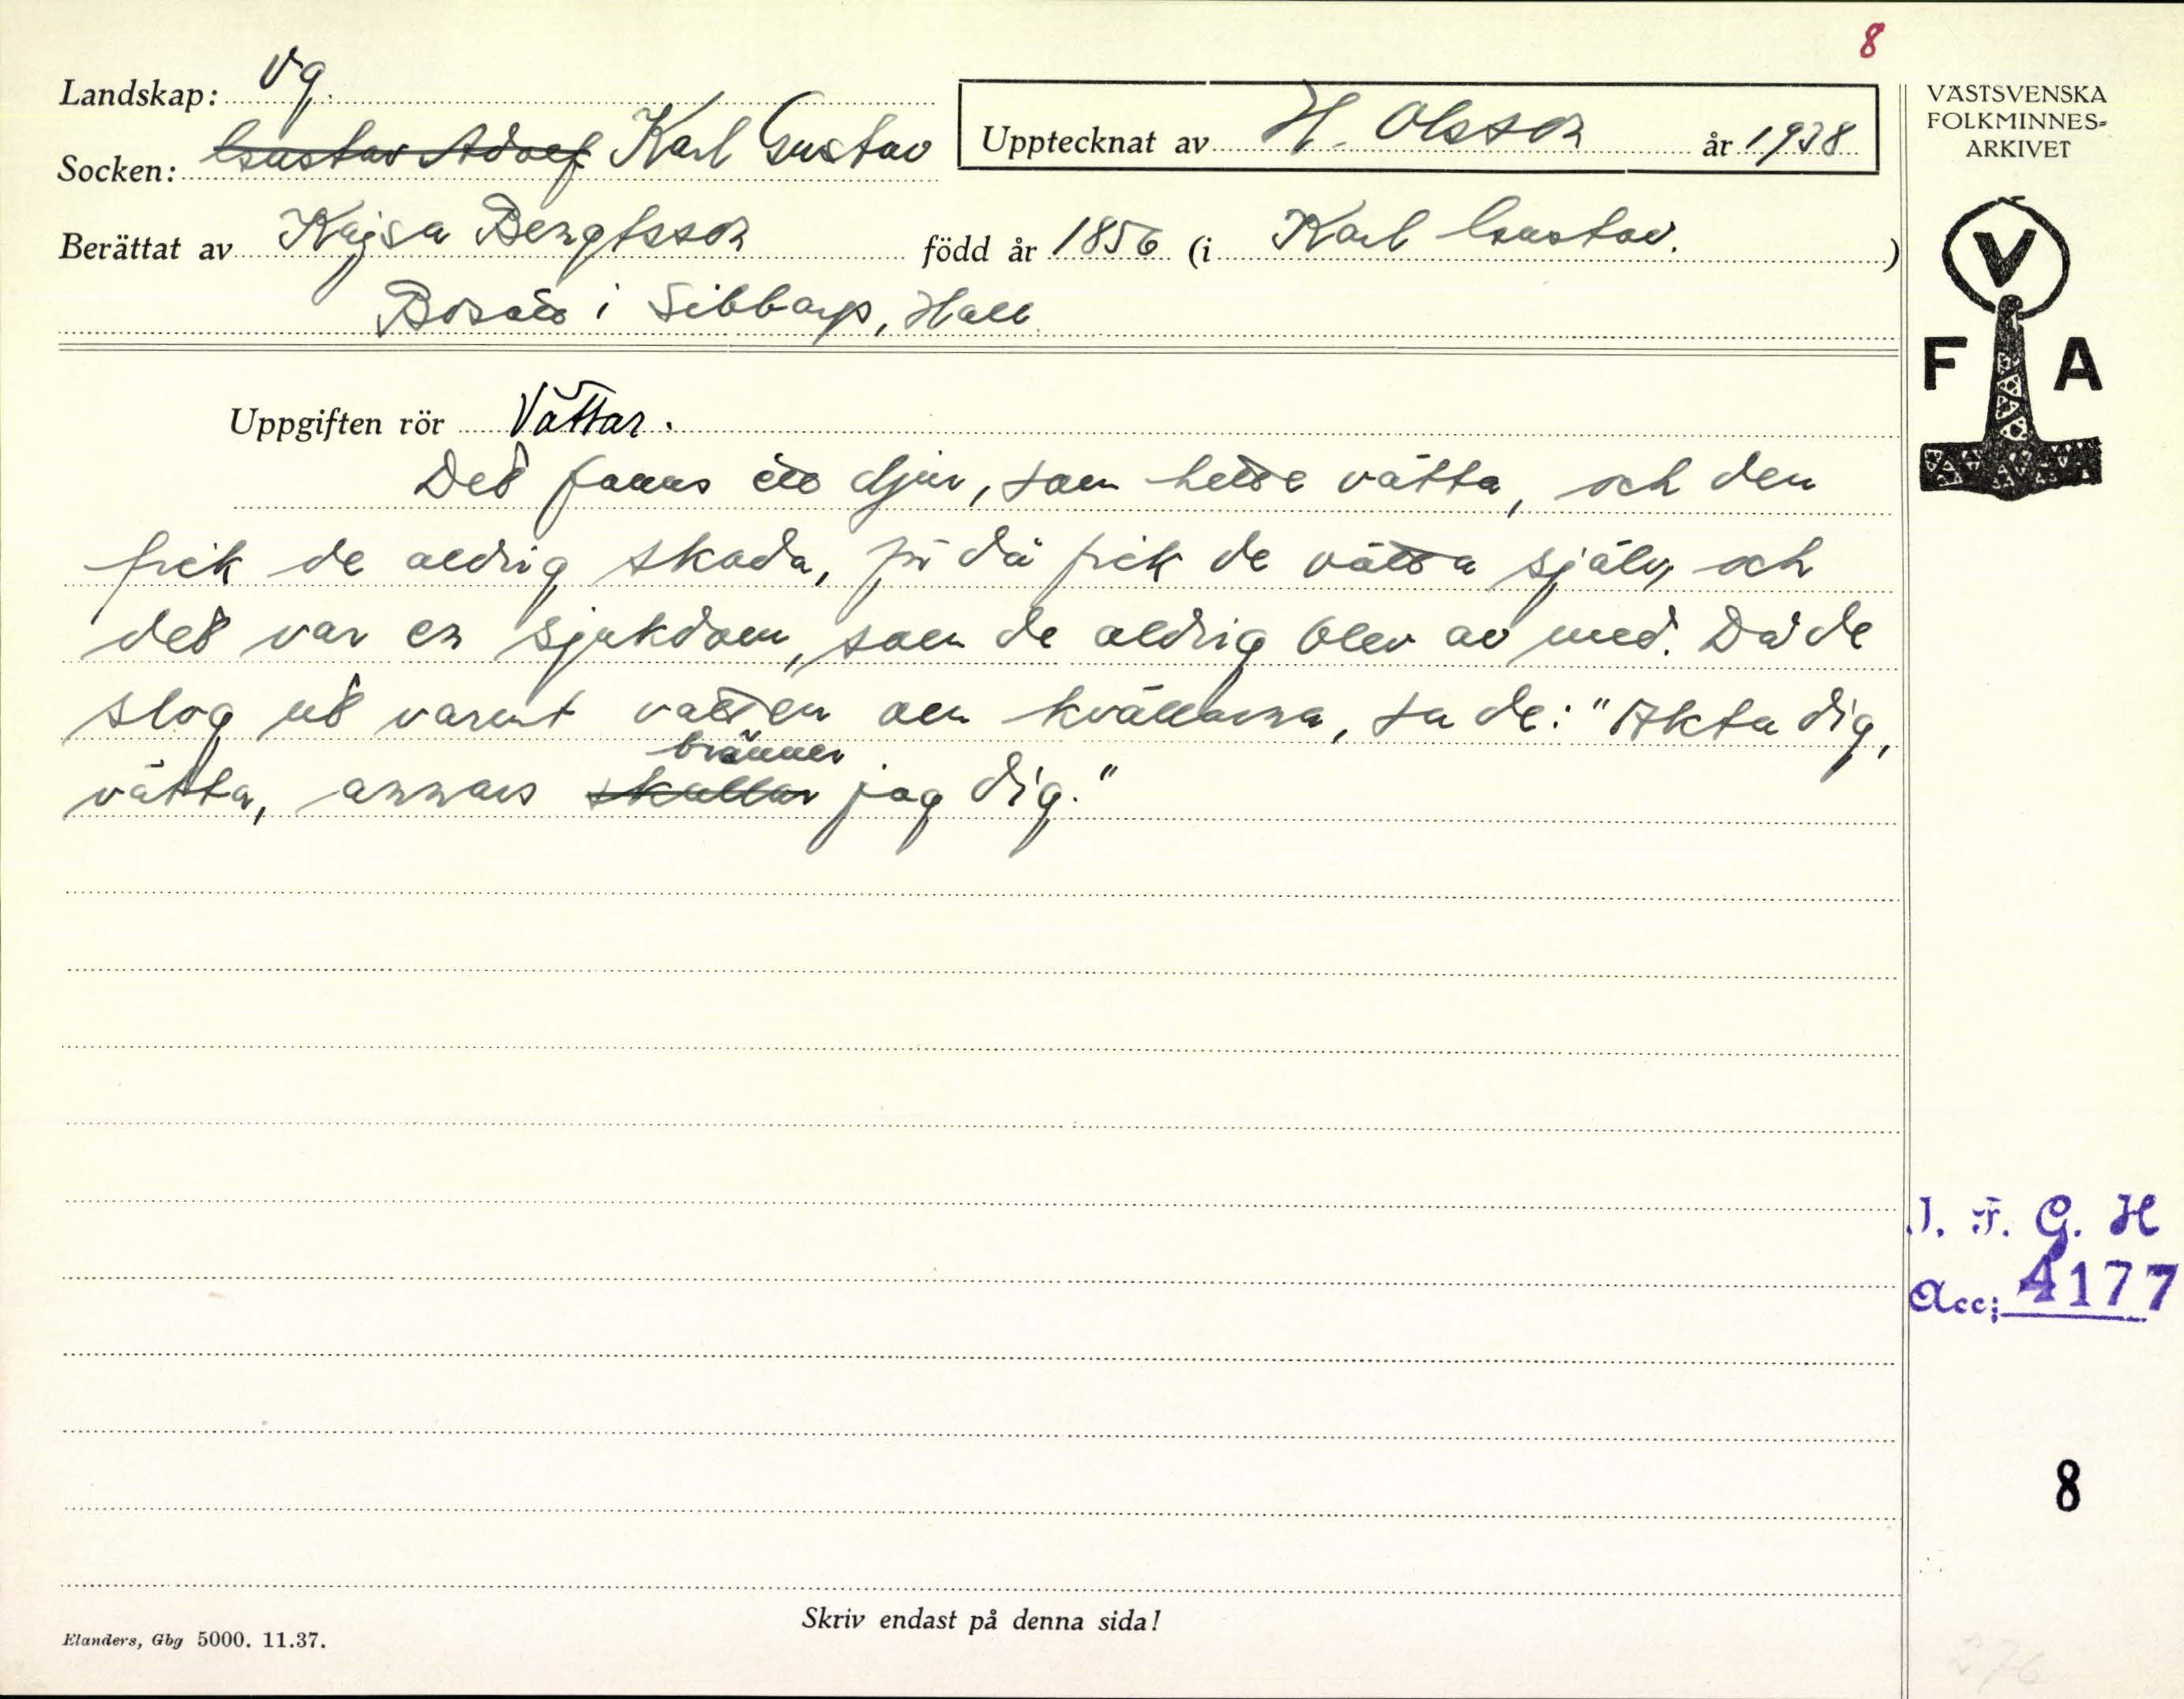 8
Landskap: Vg.
Socken: Gustav Adolf Karl Gustav
Upptecknat av H. Olsson år 1938
Berättat av Kajsa Bengtsson född år 1856 (i Karl Gustav.)
Bosatt i Sibbarp, Hall.
VÄSTSVENSKA
FOLKMINNES-
ARKIVET
V
F A
Uppgiften rör Vättar.
Det fanns ett djur, som hette vätta, och den
fick de aldrig skada, för då fick de vätta själv, och
det var en sjukdom, som de aldrig blev av med. Då de
slog ut varmt vatten om kvällarna, sa de: "Akta dig,
vätta, annars skallar bränner jag dig."
I. F. G. H
Acc; 4177
8
Skriv endast på denna sida!
Elanders, Gbg 5000. 11.37.
276